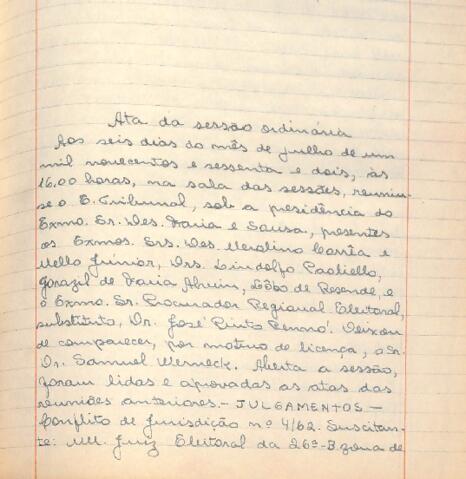 Ata da sessão ordinária
Aos seis dias do mês de julho de um
mil novecentos e sessenta e dois, às
16.00 horas, na sala das sessões, reuniu-
se o E. Tribunal, sob a presidência do
Exmo. Sr. Des. Faria e Sousa, presentes
os Exmos. Srs. Des. Merolino Corrêa e
Mello Júnior, Drs. Lindolfo Paoliello,
Gorazil de Faria Alvim, Lôbo de Resende, e
o Exmo. Sr. Procurador Regional Eleitoral,
substituto, Dr. José Pinto Rennó. Deixou
de comparecer, por motivo de licença, o Sr.
Dr. Samuel Werneck. Aberta a sessão,
foram lidas e aprovadas as atas das
reuniões anteriores. - JULGAMENTOS -
Conflito de Jurisdição nº 4/62. Suscitan-
te: MM. Juiz Eleitoral da 26ª-B zona de